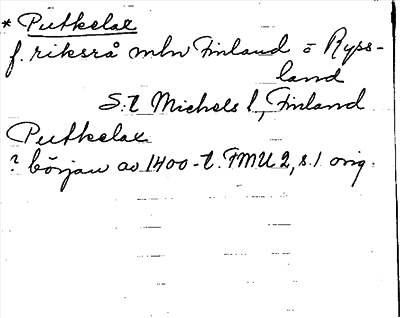 * Putkelax
f. riksrå mlw Finland o Ryss-
land
S:t Michels l., Finland
Putkelax
? början av 1400-t. FMU 2, s. 1 orig.